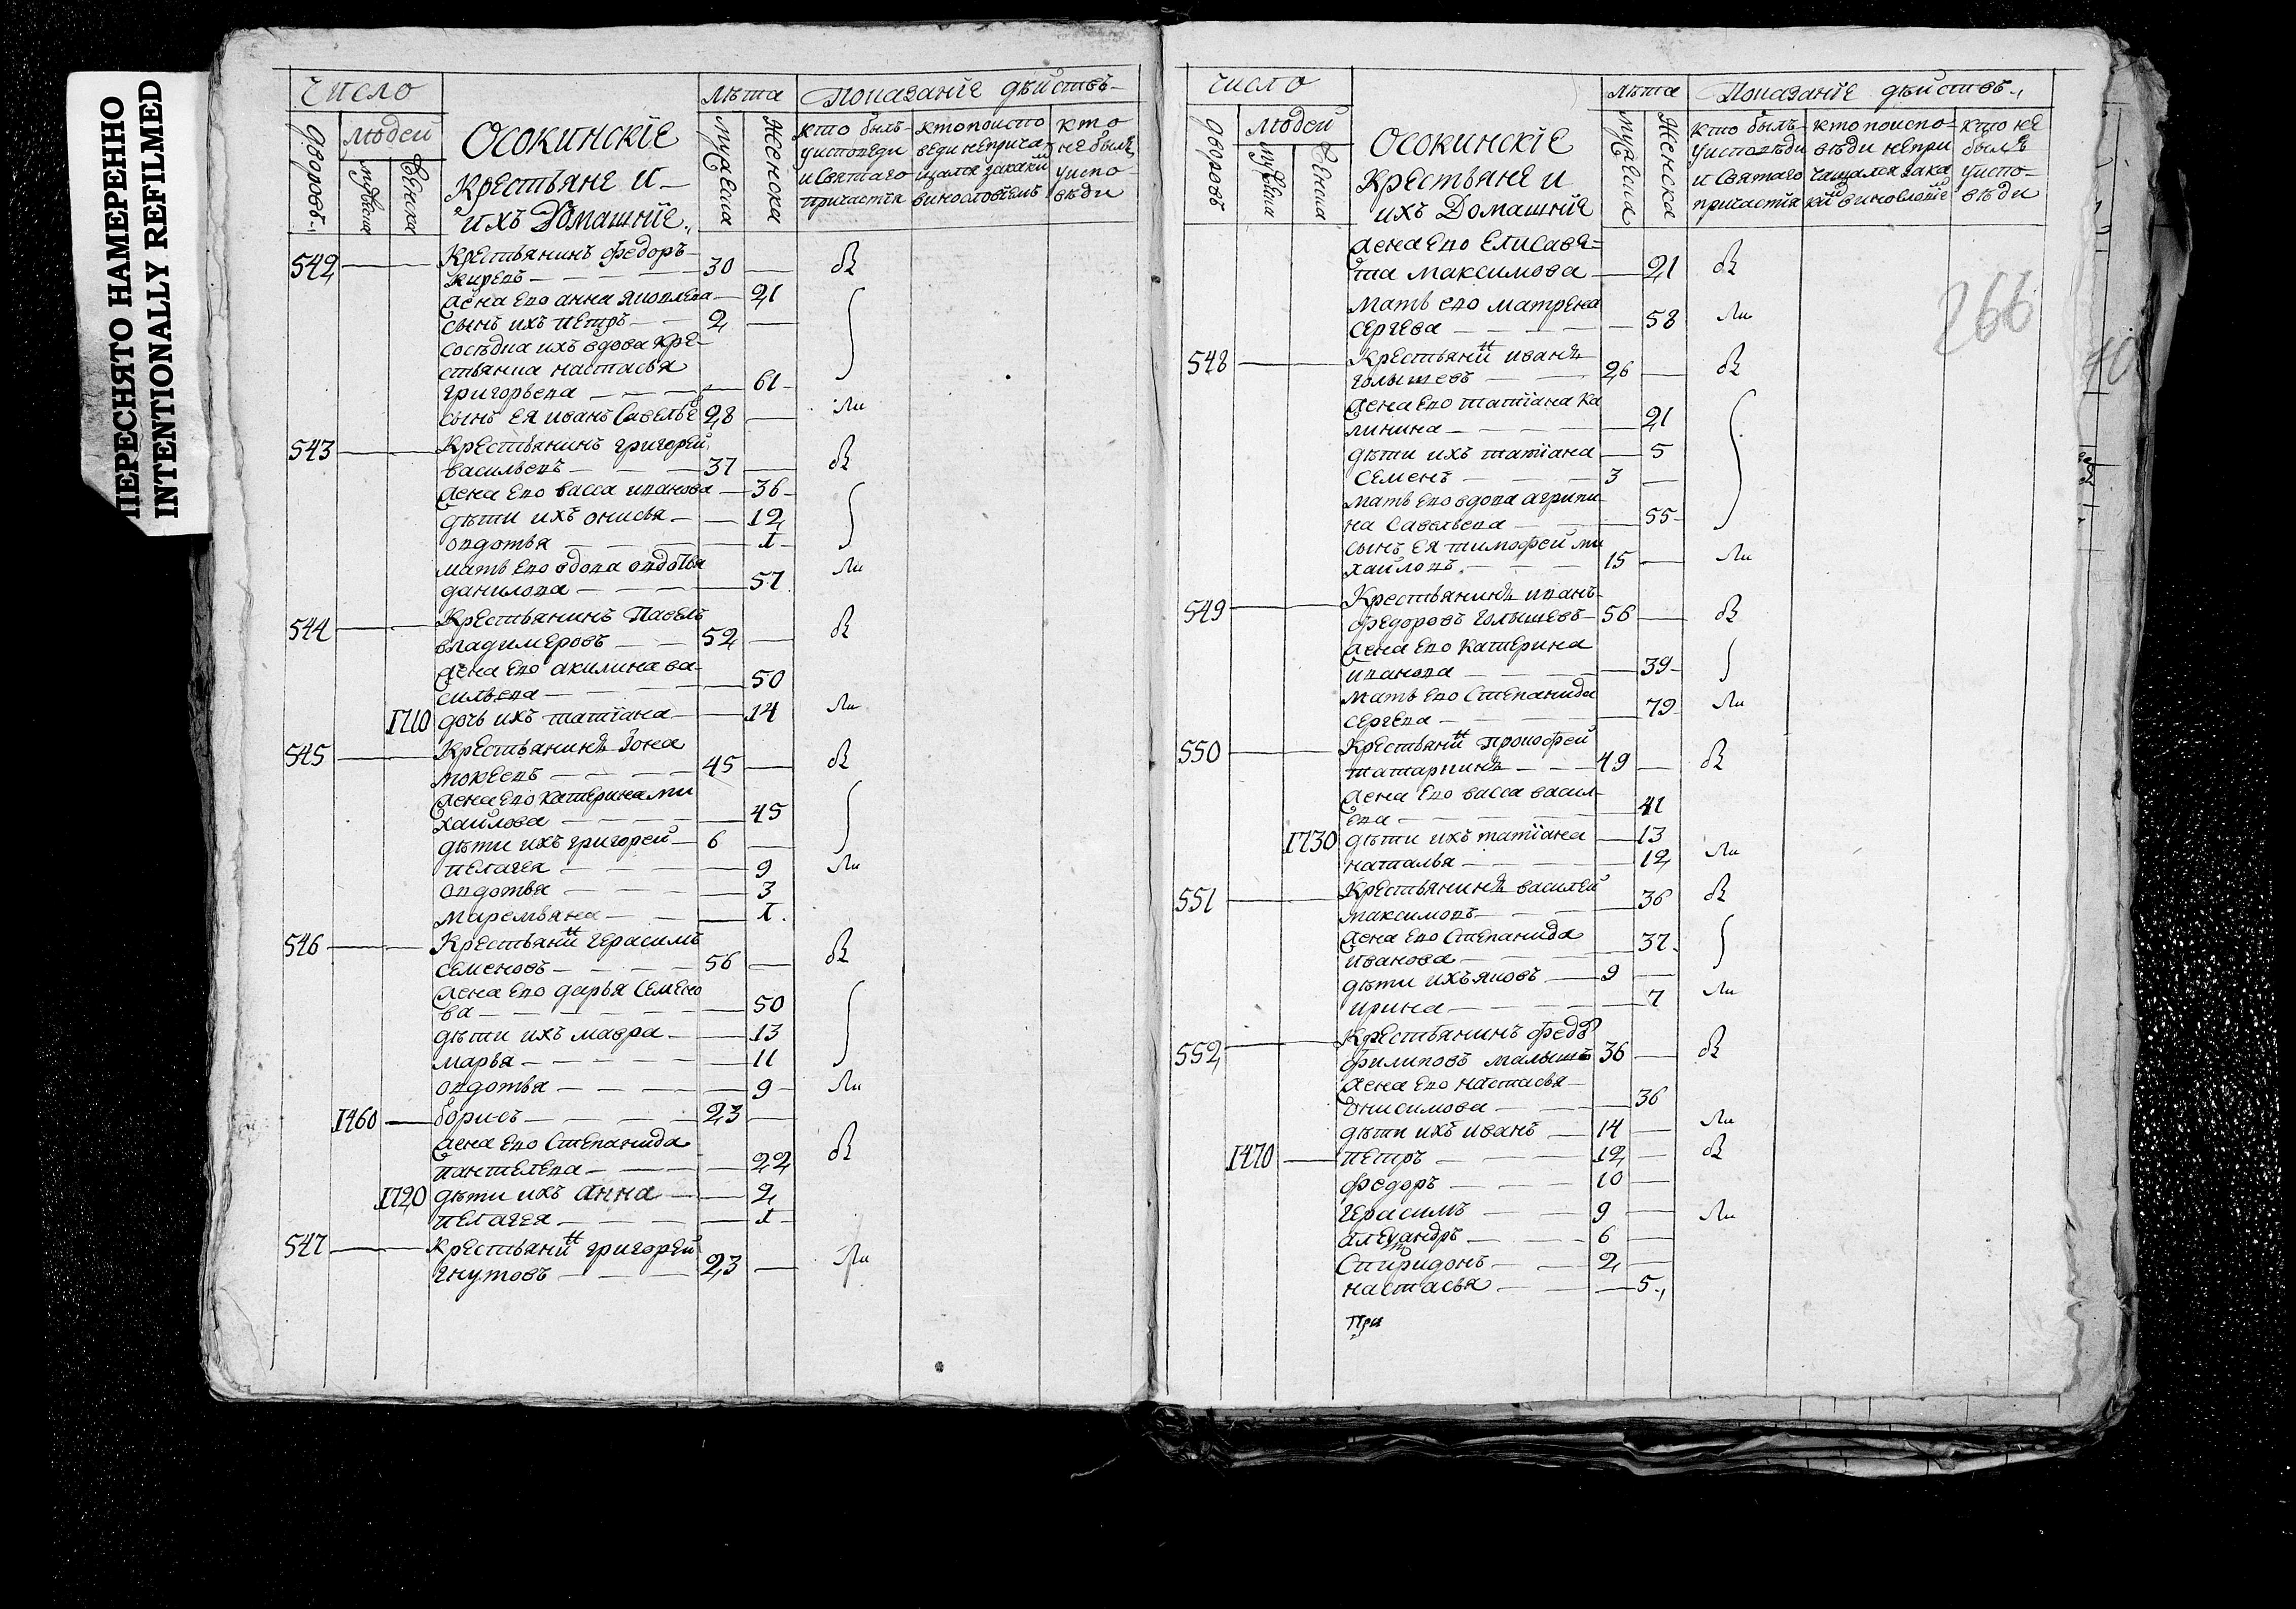 ПЕРЕСНЯТО НАМЕРЕННО
INTENTIONALLY REFILMED
число
Лѣта
Показанїе дѣиствъ
дворовъ
людей
мужеска
женска
Осокинскїе
Крестьяне и
ихъ Домашнїе
мужеска
женска
кто былъ
уисповеди
и Святаго
причастїя
кто поиспо
веди неприча
щался закаким
винословїемъ
кто
не былъ
уиспо
вѣди
542 Крестьянинъ Федоръ
30 ов
жена ево анна яковлева 21
сынъ ихъ петръ 2
сосѣдка ихъ вдова кре
стьянка настасья
григорьева 61
сынъ ея иванъ Савелье 28 ли
543 Крестьянинъ григорей
васильевъ 37 ов
жена ево васса иванова 36
дѣти ихъ онисья 12
овдотья 1
мать ево вдова овдотья ли
данилова 57
544 Крестьянинъ Павелъ
владимеровъ 52 ов
жена ево акилина ва
сильева 50
1710 дочь ихъ татїана 14 ли
545 Крестьянинъ Iона
мокеевъ 45 ов
жена ево катерина ми
хаилова 45
дѣти ихъ григорей 6
пелагея 9 ли
овдотья 3
маремьяна 1
546 Крестьянинъ герасимъ
семеновъ 56 ов
жена ево дарья Семено
ва 50
дѣти ихъ мавра 13
марья 11
овдотья 9 ли
1460 борисъ 23
жена ево Степанида ов
пантелева 22
1720 дѣти ихъ анна 2
пелагея 1
547 Крестьянинъ григорей
гнутовъ 23 ли
число
Лѣта
Показанїе дѣиствъ
дворовъ
людей
мужеска
женска
Осокинскїе
Крестьяне и
ихъ Домашнїе
мужеска
женска
кто былъ
уисповѣди
и Святаго
причастїя
кто поиспо
вѣди непри
чащался зака
кто не
былъ
уиспо
вѣди
266
жена ево Елисаве
та максимова 21 ов
мать ево матрена
сергева 58 ли
548 Крестьянинъ иванъ
голышевъ 26 ов
жена ево татїана ка
линина 21
дѣти ихъ татїана 5
семенъ 3
мать ево вдова агрипи
на Савельева 55
сынъ ея тимофей ми
хаиловъ 15 ли
549 Крестьянинъ иванъ
федоровъ голышевъ 56 ов
жена ево катерина
иванова 39
мать ево Степанида
сергева 79 ли
550 Крестьянинъ прокофей
татаркинъ 49 ов
жена ево васса васил
ева 41
1730 дѣти ихъ татїана 13
наталья 12 ли
551 Крестьянинъ василей
максимовъ 36 ов
жена ево Степанида
иванова 37
дѣти ихъ яковъ 9
ирина 7 ли
552 Крестьянинъ федоръ
филиповъ малышъ 36 ов
жена ево настасья
онисимова 36
дѣти ихъ иванъ 14 ли
1470 петръ 12 ов
федоръ 10
герасимъ 9 ли
александръ 6
Спиридонъ 2
настасья 5
при